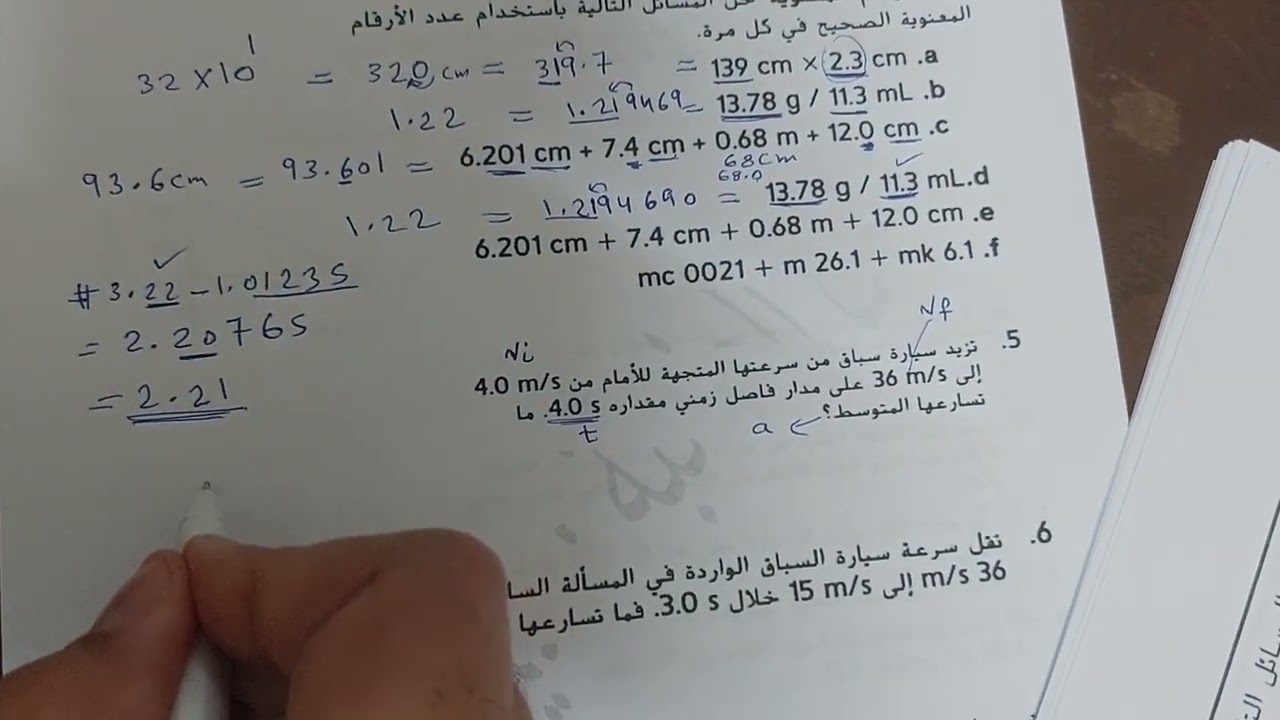 المسائل التالية باستخدام عدد الأرقام
المعنوية الصحيح في كل مرة.
32 × 10¹ = 320 cm = 319.7 = 139 cm × 2.3 cm .a
1.22 = 1.219469 = 13.78 g / 11.3 mL .b
93.6 cm = 93.601 = 6.201 cm + 7.4 cm + 0.68 m + 12.0 cm .c
68 cm
68.0
1.22 = 1.2194690 = 13.78 g / 11.3 mL.d
6.201 cm + 7.4 cm + 0.68 m + 12.0 cm .e
mc 0021 + m 26.1 + mk 6.1 .f
# 3.22 - 1.01235
= 2.20765
= 2.21
Ni
Nf
5. تزيد سيارة سباق من سرعتها المتجهة للأمام من 4.0 m/s
إلى 36 m/s على مدار فاصل زمني مقداره 4.0 s. ما
تسارعها المتوسط؟ ← a
t
6. تقل سرعة سيارة السباق الواردة في المسألة السا
36 m/s إلى 15 m/s خلال 3.0 s. فما تسارعها